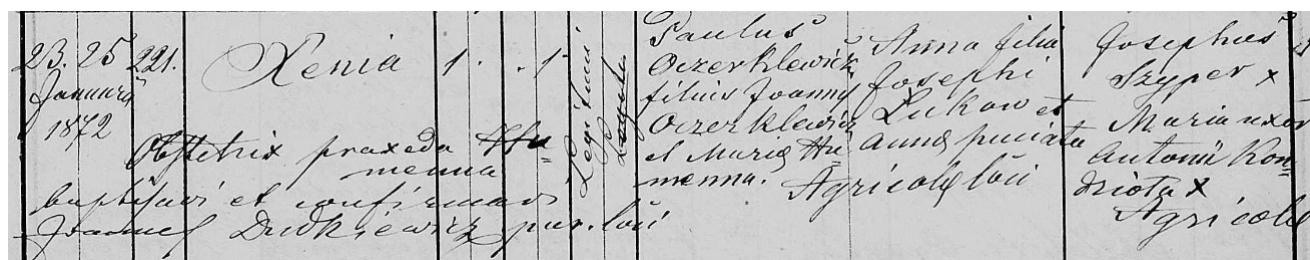 23. 25 221. Xenia 1. . 1
Januarii
1872
Obstetrix praxeda Hu=
menna
baptisavi et confirmavi
Joannes Dudkiewicz par. loci
Legitimi
Paulus
Oczerklewicz
filius Joannis
Oczerklewicz
et Mariæ Hu
menna.
Anna filia
Josephi
Lukow et
Annæ puciata
Agricolæ loci
Josephus
Szyper x
Maria uxor
Antonii Kon=
dziota x
Agricolæ